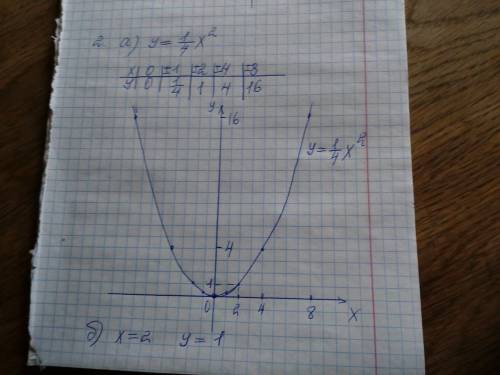 2. а) y = 1/4 x²
x | 0 | ±1 | ±2 | ±4 | ±8
y | 0 | 1/4 | 1 | 4 | 16
y
16
y = 1/4 x²
4
1
0 2 4 8 x
б) x = 2 y = 1